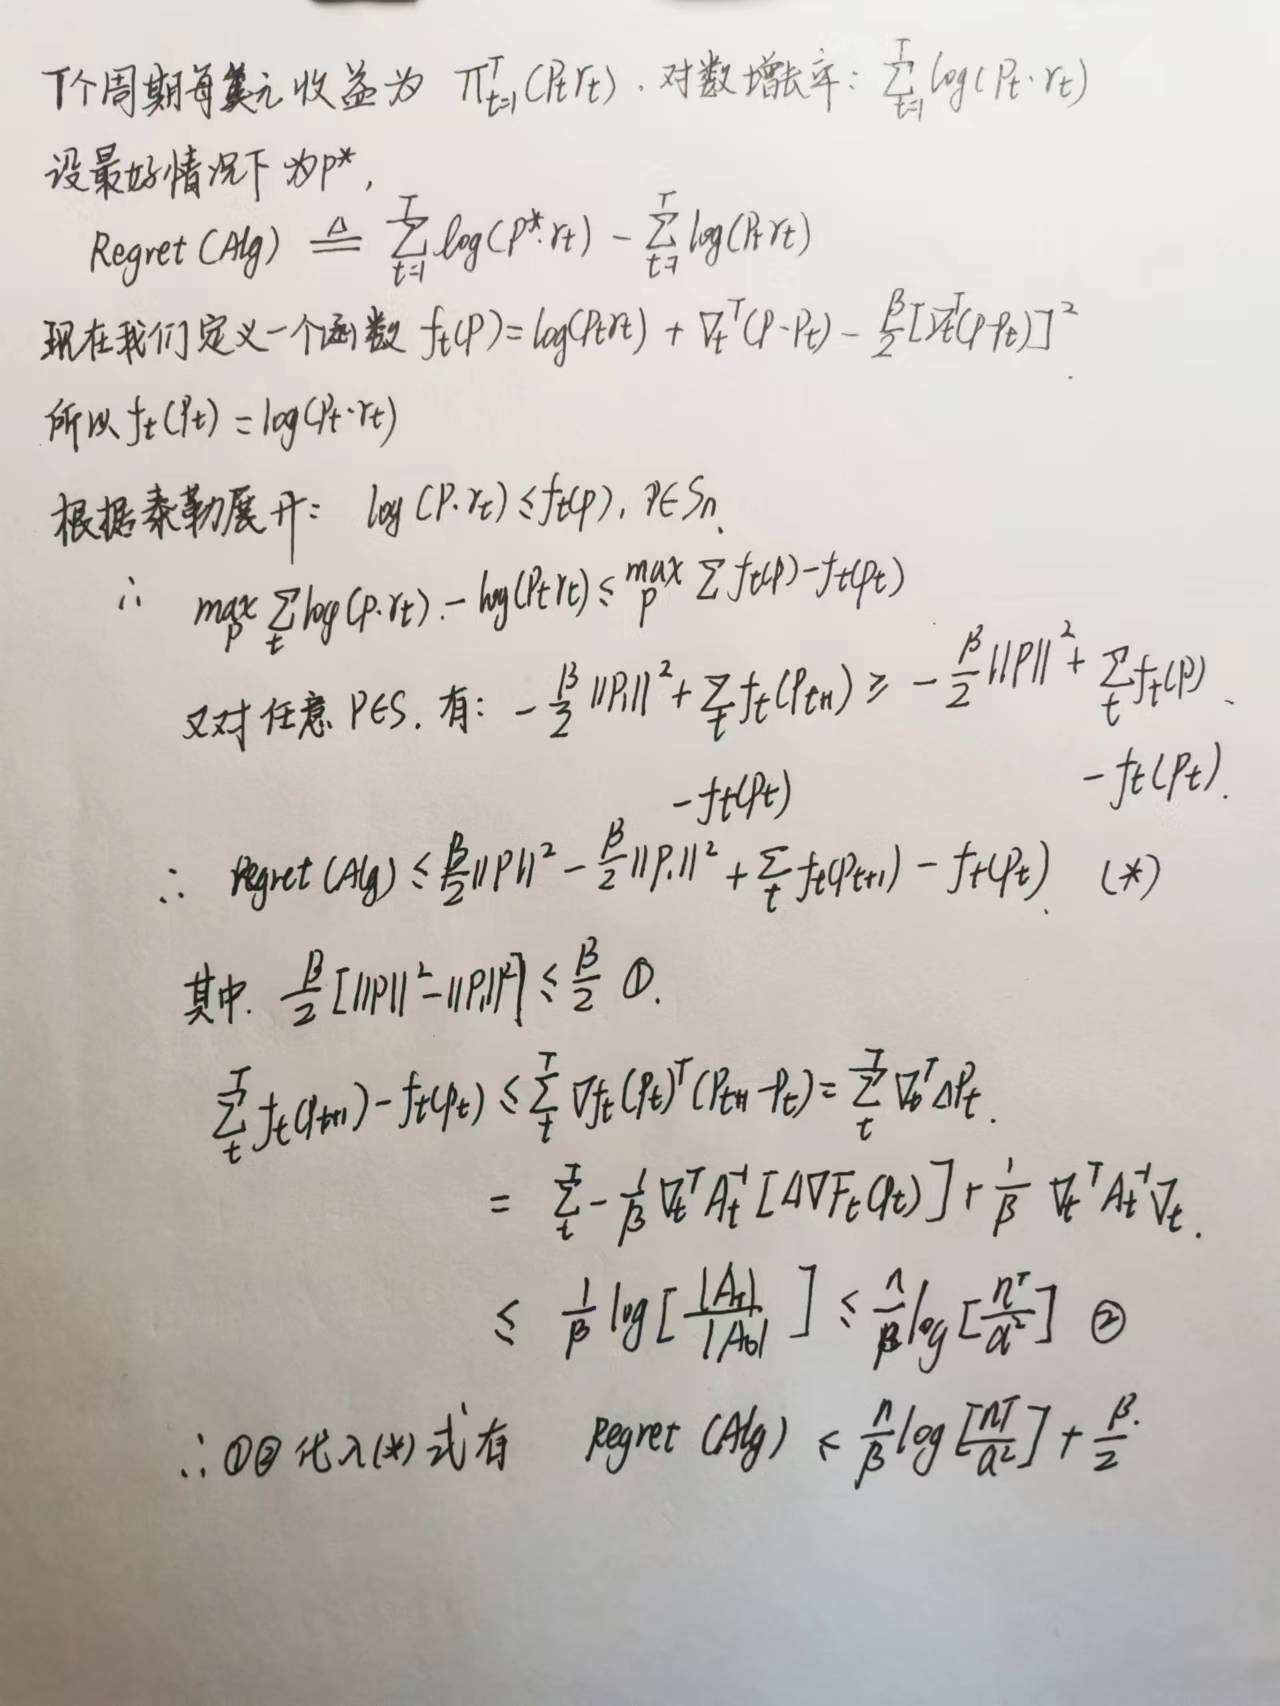 T个周期每美元收益为 Π_{t=1}^T (P_t r_t). 对数增长率: Σ_{t=1}^T log(P_t·r_t)
设最好情况下为P*,
Regret(Alg) ≜ Σ_{t=1}^T log(P*·r_t) - Σ_{t=1}^T log(P_t r_t)
现在我们定义一个函数 f_t(P)=log(P_t r_t) + ∇_t^T(P-P_t) - β/2[∇_t^T(P-P_t)]^2.
所以 f_t(P_t) = log(P_t·r_t)
根据泰勒展开: log(P·r_t) ≤ f_t(P), P∈S_n.
∴ max_P Σ_t log(P·r_t) - log(P_t r_t) ≤ max_P Σ f_t(P) - f_t(P_t)
又对任意 P∈S. 有: -β/2||P_1||^2 + Σ_t f_t(P_{t+1}) ≥ -β/2||P||^2 + Σ_t f_t(P)
-f_t(P_t) -f_t(P_t).
∴ Regret(Alg) ≤ β/2||P||^2 - β/2||P_1||^2 + Σ_t f_t(P_{t+1}) - f_t(P_t). (*)
其中. β/2[||P||^2-||P_1||^2] ≤ β/2 ①.
Σ_t^T f_t(P_{t+1}) - f_t(P_t) ≤ Σ_t^T ∇f_t(P_t)^T(P_{t+1}-P_t) = Σ_t^T ∇_t^T ΔP_t.
= Σ_t^T - 1/β ∇_t^T A_t^{-1}[Δ∇F_t(P_t)] + 1/β ∇_t^T A_t^{-1}∇_t.
≤ 1/β log[|A_T|/|A_0|] ≤ n/β log[nT/α^2] ②
∴①②代入(*)式有 Regret(Alg) ≤ n/β log[nT/α^2] + β/2.